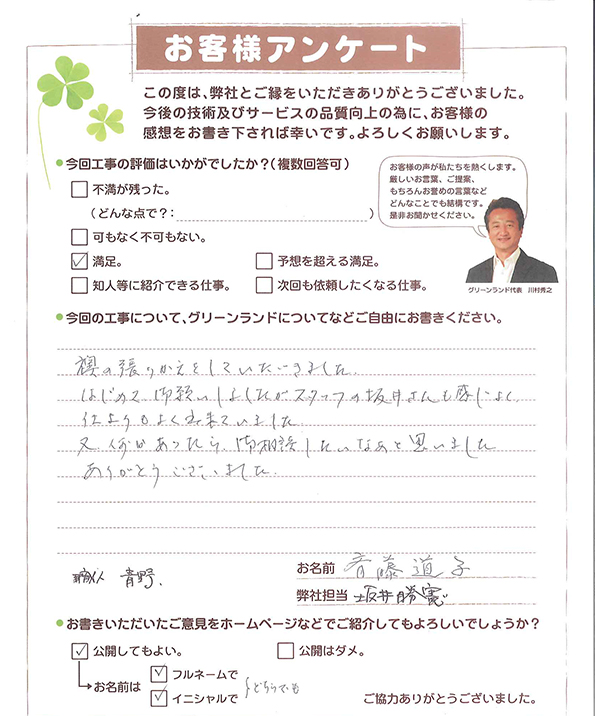 お客様アンケート
この度は、弊社とご縁をいただきありがとうございました。
今後の技術及びサービスの品質向上の為に、お客様の
感想をお書き下されば幸いです。よろしくお願いします。
●今回工事の評価はいかがでしたか?(複数回答可)
不満が残った。
(どんな点で?: )
可もなく不可もない。
✓満足。
予想を超える満足。
知人等に紹介できる仕事。
次回も依頼したくなる仕事。
お客様の声が私たちを熱くします。
厳しいお言葉、ご提案、
もちろんお誉めの言葉など
どんなことでも結構です。
是非お聞かせください。
グリーンランド代表 川村秀之
●今回の工事について、グリーンランドについてなどご自由にお書きください。
襖の張りかえをしていただきました。
はじめて御願いしましたがスタッフの坂井さんも感じよく
仕上りもよく出来ていました。
又、何かあったら、御相談したいなあと思いました
ありがとうございました。
職人 青野、
お名前 斉藤道子
弊社担当 坂井勝寛
●お書きいただいたご意見をホームページなどでご紹介してもよろしいでしょうか?
✓公開してもよい。
公開はダメ。
お名前は
✓フルネームで
✓イニシャルで
どちらでも
ご協力ありがとうございました。